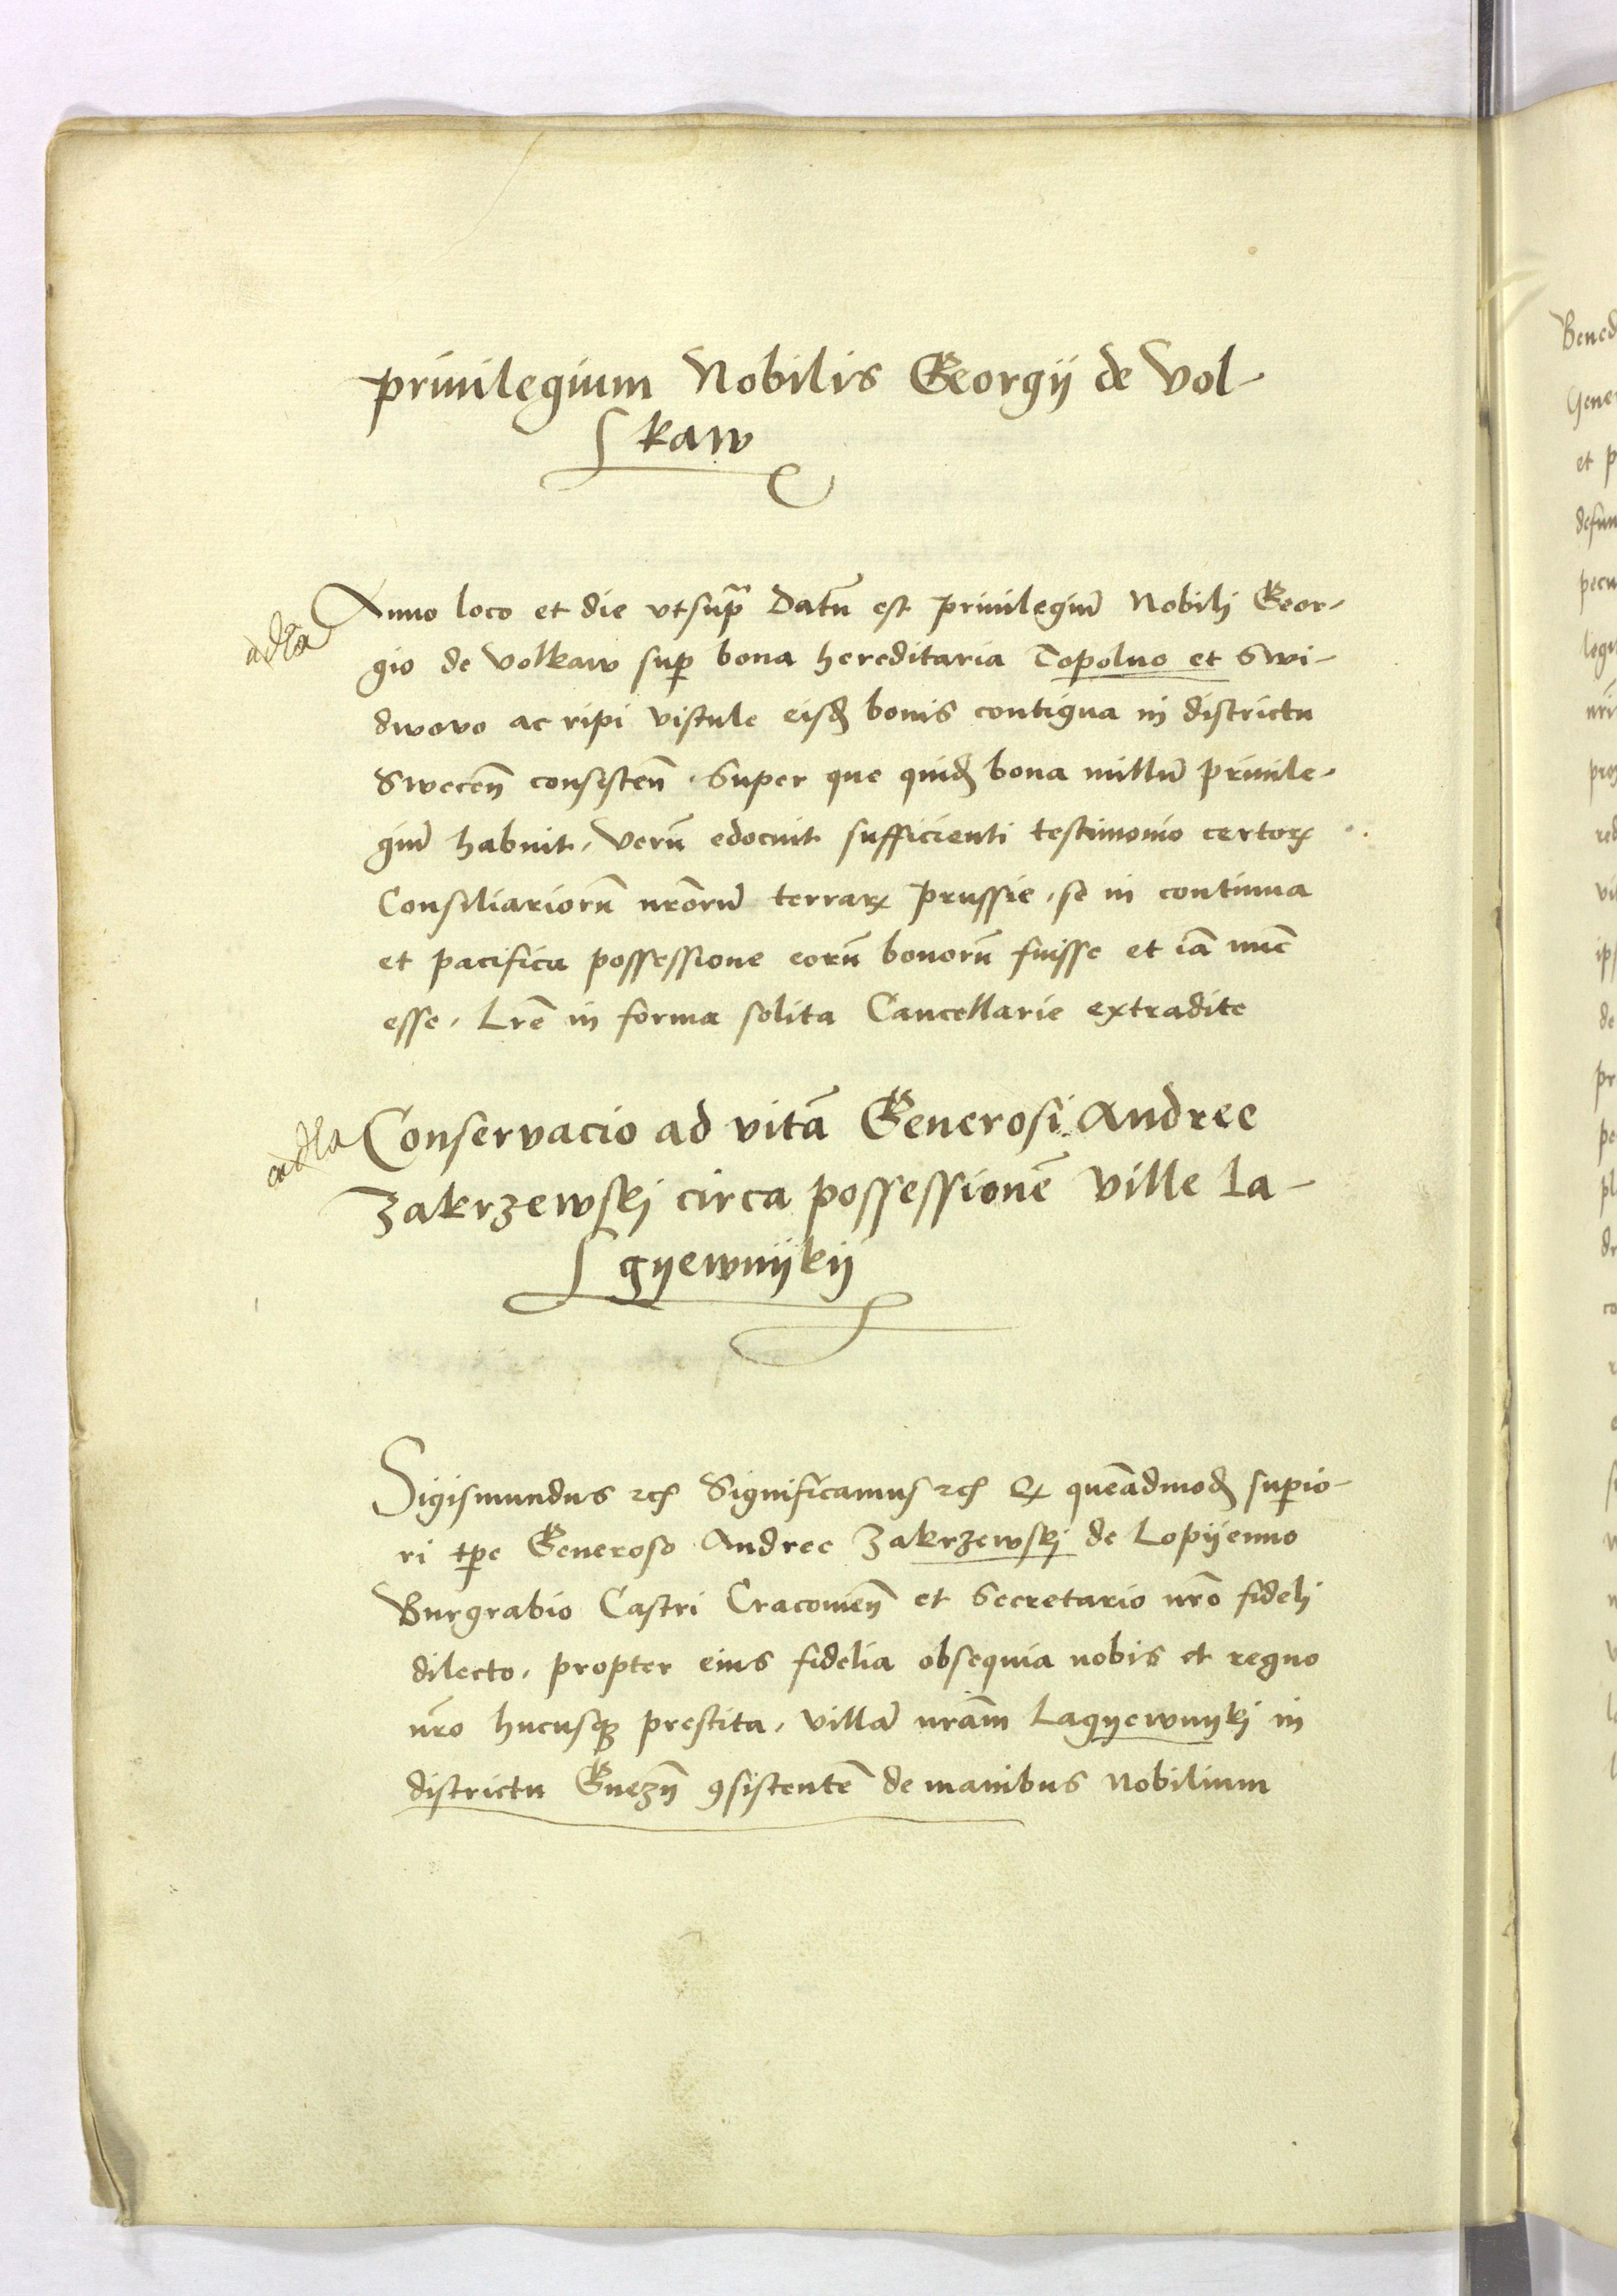 privilegium Nobilis Georgij de Vol-
kaw
Anno loco et die vtsup̃ Datũ est priuilegiũ Nobilj Geor-
gio de Volkaw sup̱ bona hereditaria Topolno et Swi-
dwovo ac ripi vistule eisđ bonis contigua in districtu
Sweceñ consisteñ. Super que quiđ bona nullũ priuile-
giũ habuit. Verũ edocuit sufficienti testimonio certoꝝ
Consiliariorũ nr̃orũ terraꝝ prussie, se in continua
et pacifica possessione eorũ bonorũ fuisse et iã nũc
esse. Lr̃e in forma solita Cancellarie extradite
Conservacio ad vitã Generosi Andree
Zakrzewskj circa possessionẽ ville La-
gyewnijkij
Sigismundus ꝛcꝭ Significamus ꝛcꝭ Qꝫ quẽadmođ superio-
ri tp̃e Generoso Andree Zakrzewskj de Lopyenno
Burgrabio Castri Cracovieñ et Secretario nr̃o fidelj
dilecto, propter eius fidelia obsequia nobis et regno
nr̃o hucusqꝫ prestita, villã nr̃am Lagyewnykj in
districtu Gnezñ ꝯsistentẽ de manibus Nobilium
Bened
Gene
et p
defun
pecu